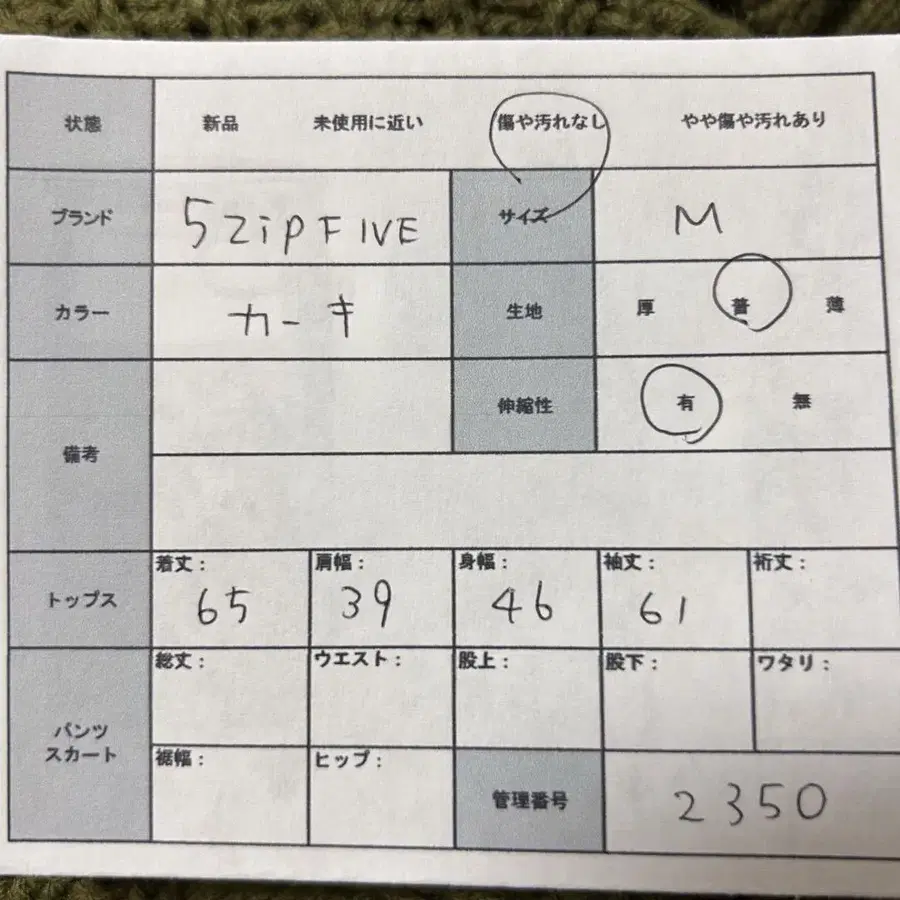 状態 新品 未使用に近い 傷や汚れなし やや傷や汚れあり
ブランド 5ZiPFIVE サイズ M
カラー カーキ 生地 厚 普 薄
備考 伸縮性 有 無
トップス 着丈： 65 肩幅： 39 身幅： 46 袖丈： 61 裄丈：
パンツ スカート 総丈： ウエスト： 股上： 股下： ワタリ：
裾幅： ヒップ： 管理番号 2350